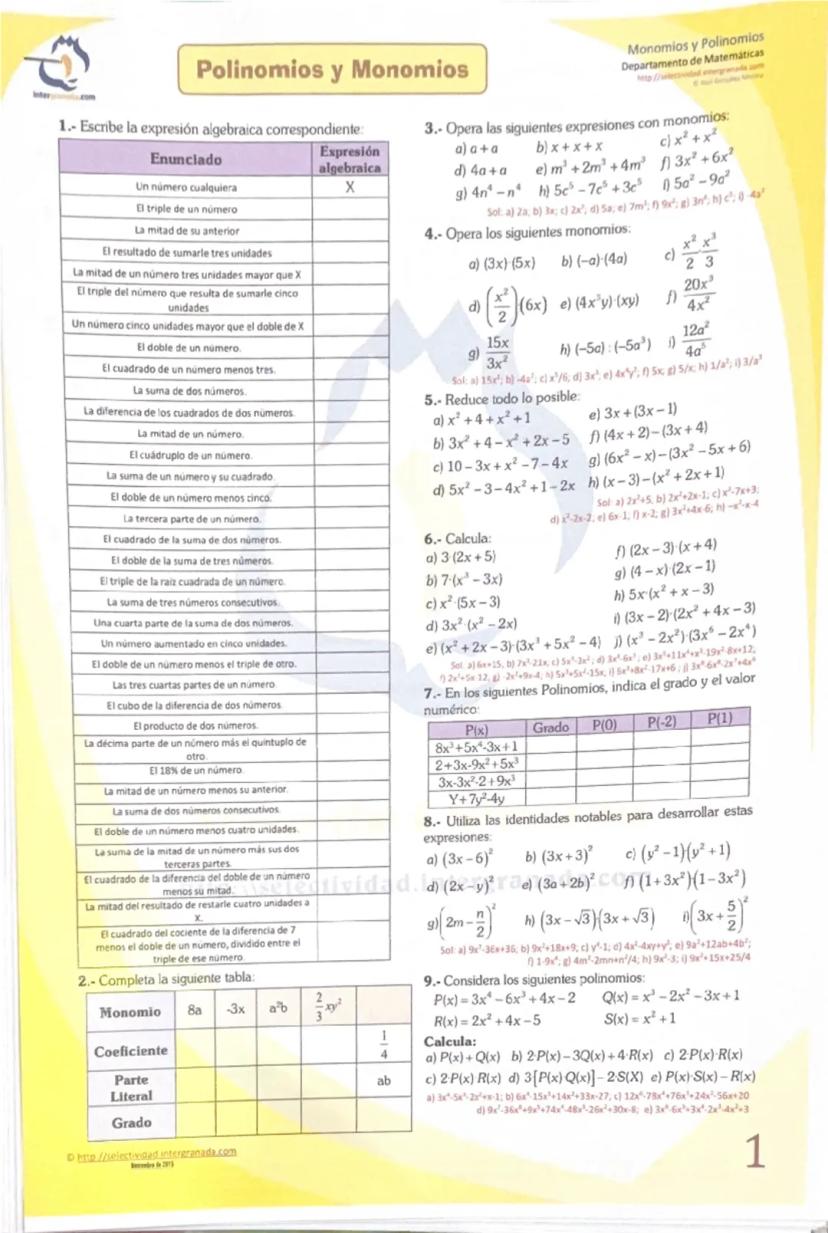 intergranada.com
Polinomios y Monomios
Monomios y Polinomios
Departamento de Matemáticas
http://selectividad.intergranada.com
1.- Escribe la expresión algebraica correspondiente:
Enunciado Expresión algebraica
Un número cualquiera X
El triple de un número
La mitad de su anterior
El resultado de sumarle tres unidades
La mitad de un número tres unidades mayor que X
El triple del número que resulta de sumarle cinco
unidades
Un número cinco unidades mayor que el doble de X
El doble de un número.
El cuadrado de un número menos tres.
La suma de dos números.
La diferencia de los cuadrados de dos números.
La mitad de un número.
El cuádruplo de un número.
La suma de un número y su cuadrado.
El doble de un número menos cinco.
La tercera parte de un número.
El cuadrado de la suma de dos números.
El doble de la suma de tres números.
El triple de la raíz cuadrada de un número.
La suma de tres números consecutivos.
Una cuarta parte de la suma de dos números.
Un número aumentado en cinco unidades.
El doble de un número menos el triple de otro.
Las tres cuartas partes de un número
El cubo de la diferencia de dos números
El producto de dos números.
La décima parte de un número más el quíntuplo de
otro.
El 18% de un número.
La mitad de un número menos su anterior.
La suma de dos números consecutivos.
El doble de un número menos cuatro unidades.
La suma de la mitad de un número más sus dos
terceras partes.
El cuadrado de la diferencia del doble de un número
menos su mitad.
La mitad del resultado de restarle cuatro unidades a
X.
El cuadrado del cociente de la diferencia de 7
menos el doble de un número, dividido entre el
triple de ese número.
2.- Completa la siguiente tabla:
Monomio 8a -3x a²b 2/3 xy²
Coeficiente 1/4
Parte
Literal ab
Grado
© http://selectividad.intergranada.com
Noviembre de 2015
3.- Opera las siguientes expresiones con monomios:
a) a + a b) x + x + x c) x² + x²
d) 4a + a e) m³ + 2m³ + 4m³ f) 3x² + 6x²
g) 4n⁴ − n⁴ h) 5c⁵ − 7c⁵ + 3c⁵ i) 5a² − 9a²
Sol: a) 2a; b) 3x; c) 2x²; d) 5a; e) 7m³; f) 9x²; g) 3n⁴; h) c⁵; i) -4a²
4.- Opera los siguientes monomios:
a) (3x)·(5x) b) (−a)·(4a) c) x²/2 · x³/3
d) (x²/2)·(6x) e) (4x³y)·(xy) f) 20x³/4x²
g) 15x/3x² h) (−5a) : (−5a³) i) 12a²/4a⁵
Sol: a) 15x²; b) -4a²; c) x⁵/6; d) 3x³; e) 4x⁴y²; f) 5x; g) 5/x; h) 1/a²; i) 3/a³
5.- Reduce todo lo posible:
a) x² + 4 + x² + 1 e) 3x + (3x − 1)
b) 3x² + 4 − x² + 2x − 5 f) (4x + 2) − (3x + 4)
c) 10 − 3x + x² − 7 − 4x g) (6x² − x) − (3x² − 5x + 6)
d) 5x² − 3 − 4x² + 1 − 2x h) (x − 3) − (x² + 2x + 1)
Sol: a) 2x²+5, b) 2x²+2x-1; c) x²-7x+3;
d) x²-2x-2, e) 6x-1, f) x-2; g) 3x²+4x-6; h) −x²-x-4
6.- Calcula:
a) 3·(2x + 5) f) (2x − 3)·(x + 4)
b) 7·(x³ − 3x) g) (4 − x)·(2x − 1)
c) x²·(5x − 3) h) 5x·(x² + x − 3)
d) 3x²·(x² − 2x) i) (3x − 2)·(2x² + 4x − 3)
e) (x² + 2x − 3)·(3x³ + 5x² − 4) j) (x³ − 2x²)·(3x⁶ − 2x⁴)
Sol: a) 6x+15, b) 7x³-21x; c) 5x³-3x²; d) 3x⁴-6x³; e) 3x⁵+11x⁴+x³-19x²-8x+12,
f) 2x²+5x-12, g) -2x²+9x-4; h) 5x³+5x²-15x, i) 6x³+8x²-17x+6 ; j) 3x⁹-6x⁸-2x⁷+4x⁶
7.- En los siguientes Polinomios, indica el grado y el valor
numérico:
P(x) Grado P(0) P(-2) P(1)
8x³+5x⁴-3x+1
2+3x-9x²+5x³
3x-3x²-2+9x³
Y+7y²-4y
8.- Utiliza las identidades notables para desarrollar estas
expresiones:
a) (3x − 6)² b) (3x + 3)² c) (y² − 1)(y² + 1)
d) (2x − y)² e) (3a + 2b)² f) (1 + 3x²)(1 − 3x²)
g) (2m − n/2)² h) (3x − √3)(3x + √3) i) (3x + 5/2)²
Sol: a) 9x²-36x+36; b) 9x²+18x+9; c) y⁴-1; d) 4x²-4xy+y²; e) 9a²+12ab+4b²;
f) 1-9x⁴; g) 4m²-2mn+n²/4; h) 9x²-3; i) 9x²+15x+25/4
9.- Considera los siguientes polinomios:
P(x) = 3x⁴ − 6x³ + 4x − 2 Q(x) = x³ − 2x² − 3x + 1
R(x) = 2x² + 4x − 5 S(x) = x² + 1
Calcula:
a) P(x) + Q(x) b) 2·P(x) − 3Q(x) + 4·R(x) c) 2·P(x)·R(x)
c) 2·P(x)·R(x) d) 3[P(x)·Q(x)] − 2·S(X) e) P(x)·S(x) − R(x)
1